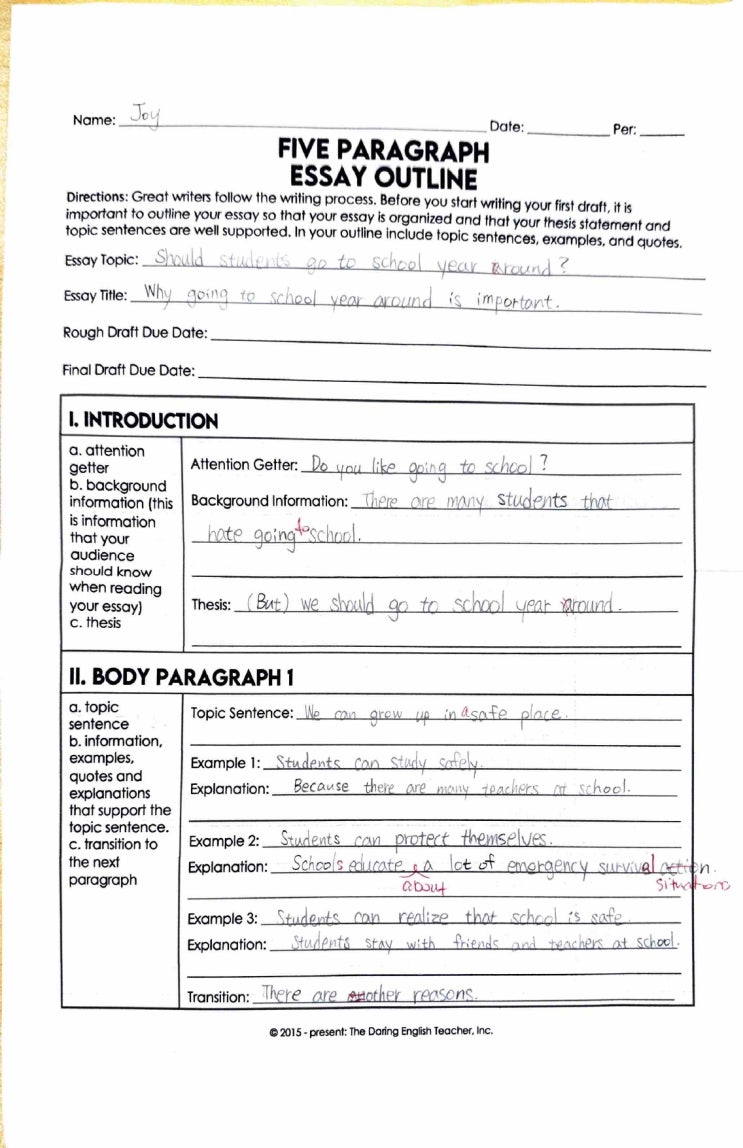 Name: Joy Date: Per:
FIVE PARAGRAPH
ESSAY OUTLINE
Directions: Great writers follow the writing process. Before you start writing your first draft, it is
important to outline your essay so that your essay is organized and that your thesis statement and
topic sentences are well supported. In your outline include topic sentences, examples, and quotes.
Essay Topic: Should students go to school year around?
Essay Title: Why going to school year around is important.
Rough Draft Due Date:
Final Draft Due Date:
I. INTRODUCTION
a. attention
getter
b. background
information (this
is information
that your
audience
should know
when reading
your essay)
c. thesis
Attention Getter: Do you like going to school?
Background Information: There are many students that
hate going to school.
Thesis: (But) we should go to school year around.
II. BODY PARAGRAPH 1
a. topic
sentence
b. information,
examples,
quotes and
explanations
that support the
topic sentence.
c. transition to
the next
paragraph
Topic Sentence: We can grow up in a safe place.
Example 1: Students can study safely.
Explanation: Because there are many teachers at school.
Example 2: Students can protect themselves.
Explanation: Schools educate a lot of emergency survival action.
about situations
Example 3: Students can realize that school is safe.
Explanation: Students stay with friends and teachers at school.
Transition: There are other reasons.
© 2015 - present: The Daring English Teacher, Inc.